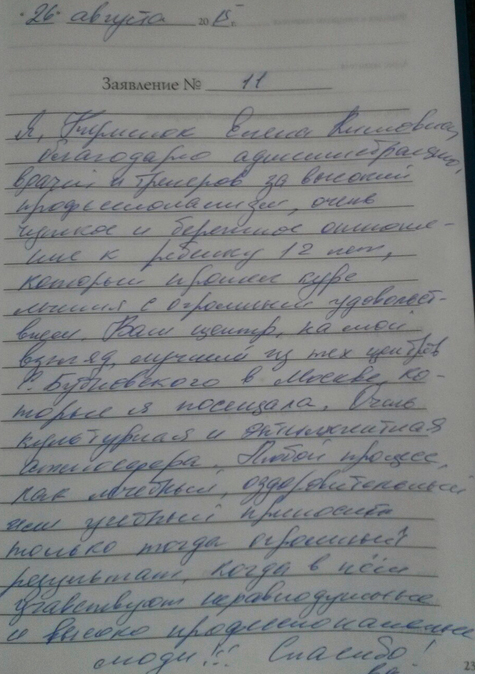 26 августа 2015 г.
Заявление № 11
Я, Кирилюк Елена Кимовна,
благодарю администрацию,
врачей и тренеров за высокий
профессионализм, очень
чуткое и бережное отноше-
ние к ребёнку 12 лет,
который прошел курс
лечения с огромным удовольст-
вием. Ваш центр, на мой
взгляд, лучший из тех центров
С. Бубновского в Москве, ко-
торые я посещала. Очень
культурная и
атмосфера. Любой процесс,
как лечебный, оздоровительный
или учебный приносит
только тогда огромный
результат, когда в нём
участвуют неравнодушные
и высоко профессиональные
люди!!! Спасибо!
23